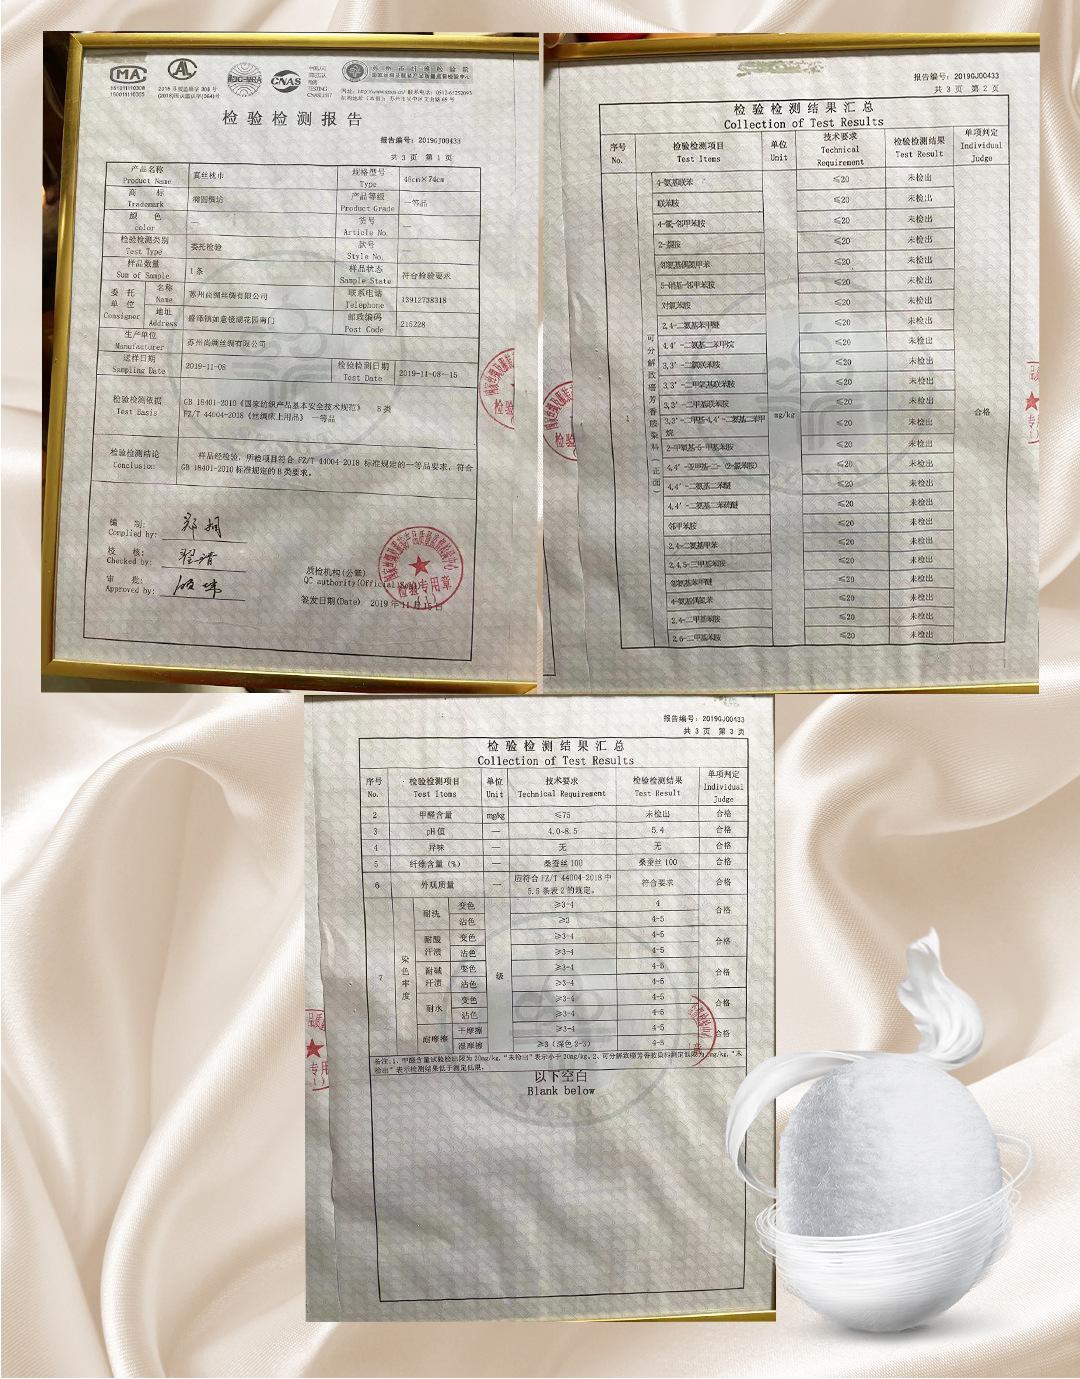 MA
AL
ilac-MRA
CNAS
检验检测报告
报告编号：2019GJ00433
共 3 页 第 1 页
产品名称 Product Name 真丝枕巾 规格型号 Type 48cm×74cm
商标 Trademark 产品等级 Product Grade 一等品
颜色 color — 货号 Article No. —
检验检测类别 Test Type 委托检验 款号 Style No.
样品数量 Sum of Sample 1条 样品状态 Sample State 符合检验要求
委托单位 Consigner 名称 Name 苏州尚绸丝绸有限公司 联系电话 Telephone 13912738318
地址 Address 盛泽镇如意镜湖花园南门 邮政编码 Post Code 215228
生产单位 Manufacturer 苏州尚绸丝绸有限公司
送样日期 Sampling Date 2019-11-08 检验检测日期 Test Date 2019-11-08~15
检验检测依据 Test Basis GB 18401-2010《国家纺织产品基本安全技术规范》 B类
FZ/T 44004-2018《丝绸床上用品》 一等品
检验检测结论 Conclusion 样品经检验，所检项目符合 FZ/T 44004-2018 标准规定的一等品要求，符合
GB 18401-2010 标准规定的B类要求。
编 制：
Complied by:
校 核：
Checked by:
审 批：
Approved by:
质检机构(公章)
QC authority(Official Seal)
签发日期(Date) 2019年11月15日
检验专用章
(1)
报告编号：2019GJ00433
共 3 页 第 2 页
检验检测结果汇总
Collection of Test Results
序号 No. 检验检测项目 Test Items 单位 Unit 技术要求 Technical Requirement 检验检测结果 Test Result 单项判定 Individual Judge
1 可分解致癌芳香胺染料（正面） mg/kg 合格
4-氨基联苯 ≤20 未检出
联苯胺 ≤20 未检出
4-氯-邻甲苯胺 ≤20 未检出
2-萘胺 ≤20 未检出
邻氨基偶氮甲苯 ≤20 未检出
5-硝基-邻甲苯胺 ≤20 未检出
对氯苯胺 ≤20 未检出
2,4-二氨基苯甲醚 ≤20 未检出
4,4'-二氨基二苯甲烷 ≤20 未检出
3,3'-二氯联苯胺 ≤20 未检出
3,3'-二甲氧基联苯胺 ≤20 未检出
3,3'-二甲基联苯胺 ≤20 未检出
3,3'-二甲基-4,4'-二氨基二苯甲烷 ≤20 未检出
2-甲氧基-5-甲基苯胺 ≤20 未检出
4,4'-亚甲基-二-（2-氯苯胺） ≤20 未检出
4,4'-二氨基二苯醚 ≤20 未检出
4,4'-二氨基二苯硫醚 ≤20 未检出
邻甲苯胺 ≤20 未检出
2,4-二氨基甲苯 ≤20 未检出
2,4,5-三甲基苯胺 ≤20 未检出
邻氨基苯甲醚 ≤20 未检出
4-氨基偶氮苯 ≤20 未检出
2,4-二甲基苯胺 ≤20 未检出
2,6-二甲基苯胺 ≤20 未检出
报告编号：2019GJ00433
共 3 页 第 3 页
检验检测结果汇总
Collection of Test Results
序号 No. 检验检测项目 Test Items 单位 Unit 技术要求 Technical Requirement 检验检测结果 Test Result 单项判定 Individual Judge
2 甲醛含量 mg/kg ≤75 未检出 合格
3 pH值 — 4.0~8.5 5.4 合格
4 异味 — 无 无 合格
5 纤维含量（%） — 桑蚕丝100 桑蚕丝100 合格
6 外观质量 — 应符合 FZ/T 44004-2018 中 5.5 条表2的规定。 符合要求 合格
7 染色牢度 级
耐洗 变色 ≥3-4 4 合格
沾色 ≥3 4-5
耐酸汗渍 变色 ≥3-4 4-5 合格
沾色 ≥3-4 4-5
耐碱汗渍 变色 ≥3-4 4-5 合格
沾色 ≥3-4 4-5
耐水 变色 ≥3-4 4-5 合格
沾色 ≥3-4 4-5
耐摩擦 干摩擦 ≥3-4 4-5 合格
湿摩擦 ≥3（深色2-3） 4-5
备注:1、甲醛含量试验检出限为20mg/kg,"未检出"表示小于20mg/kg。2、可分解致癌芳香胺染料测定低限为 mg/kg,"未
检出"表示检测结果低于测定低限。
以下空白
Blank below